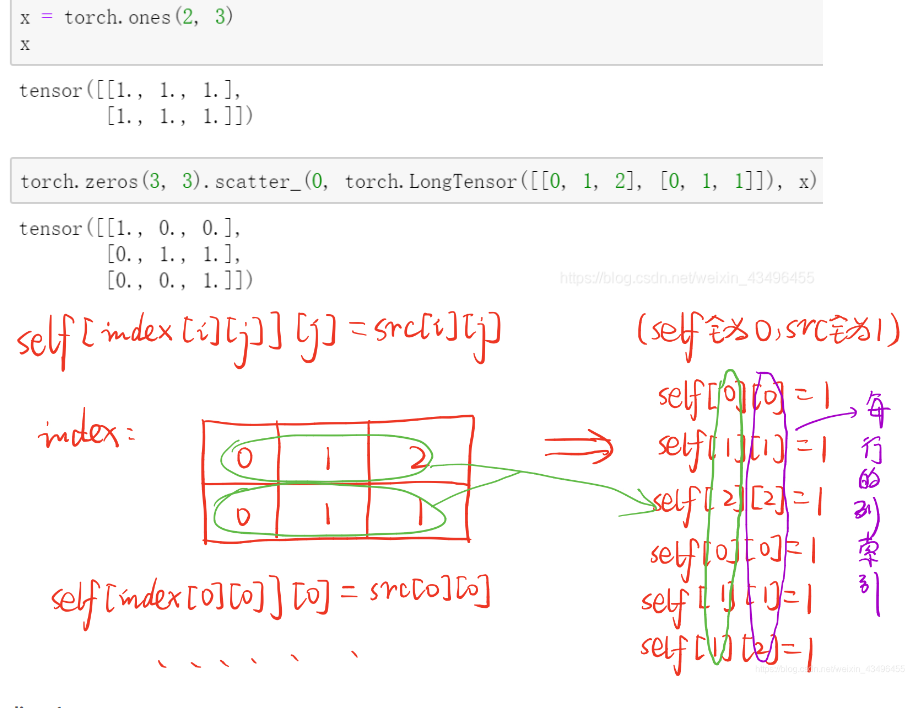 x = torch.ones(2, 3)
x
tensor([[1., 1., 1.],
[1., 1., 1.]])
torch.zeros(3, 3).scatter_(0, torch.LongTensor([[0, 1, 2], [0, 1, 1]]), x)
tensor([[1., 0., 0.],
[0., 1., 1.],
[0., 0., 1.]])
https://blog.csdn.net/weixin_43496455
self[index[i][j]][j]=src[i][j]
(self全为0,src全为1)
index:
0 1 2
0 1 1
self[index[0][0]][0] = src[0][0]
self[0][0]=1
self[1][1]=1
self[2][2]=1
self[0][0]=1
self[1][1]=1
self[1][2]=1
每行的列索引
https://blog.csdn.net/weixin_43496455